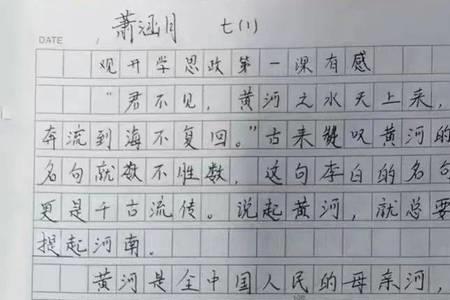 DATE
萧涵月 七(1)
观开学思政第一课有感
"君不见,黄河之水天上来,
奔流到海不复回。"古来赞叹黄河的
名句就数不胜数,这句李白的名句
更是千古流传。说起黄河,就总要
提起河南。
黄河是全中国人民的母亲河,